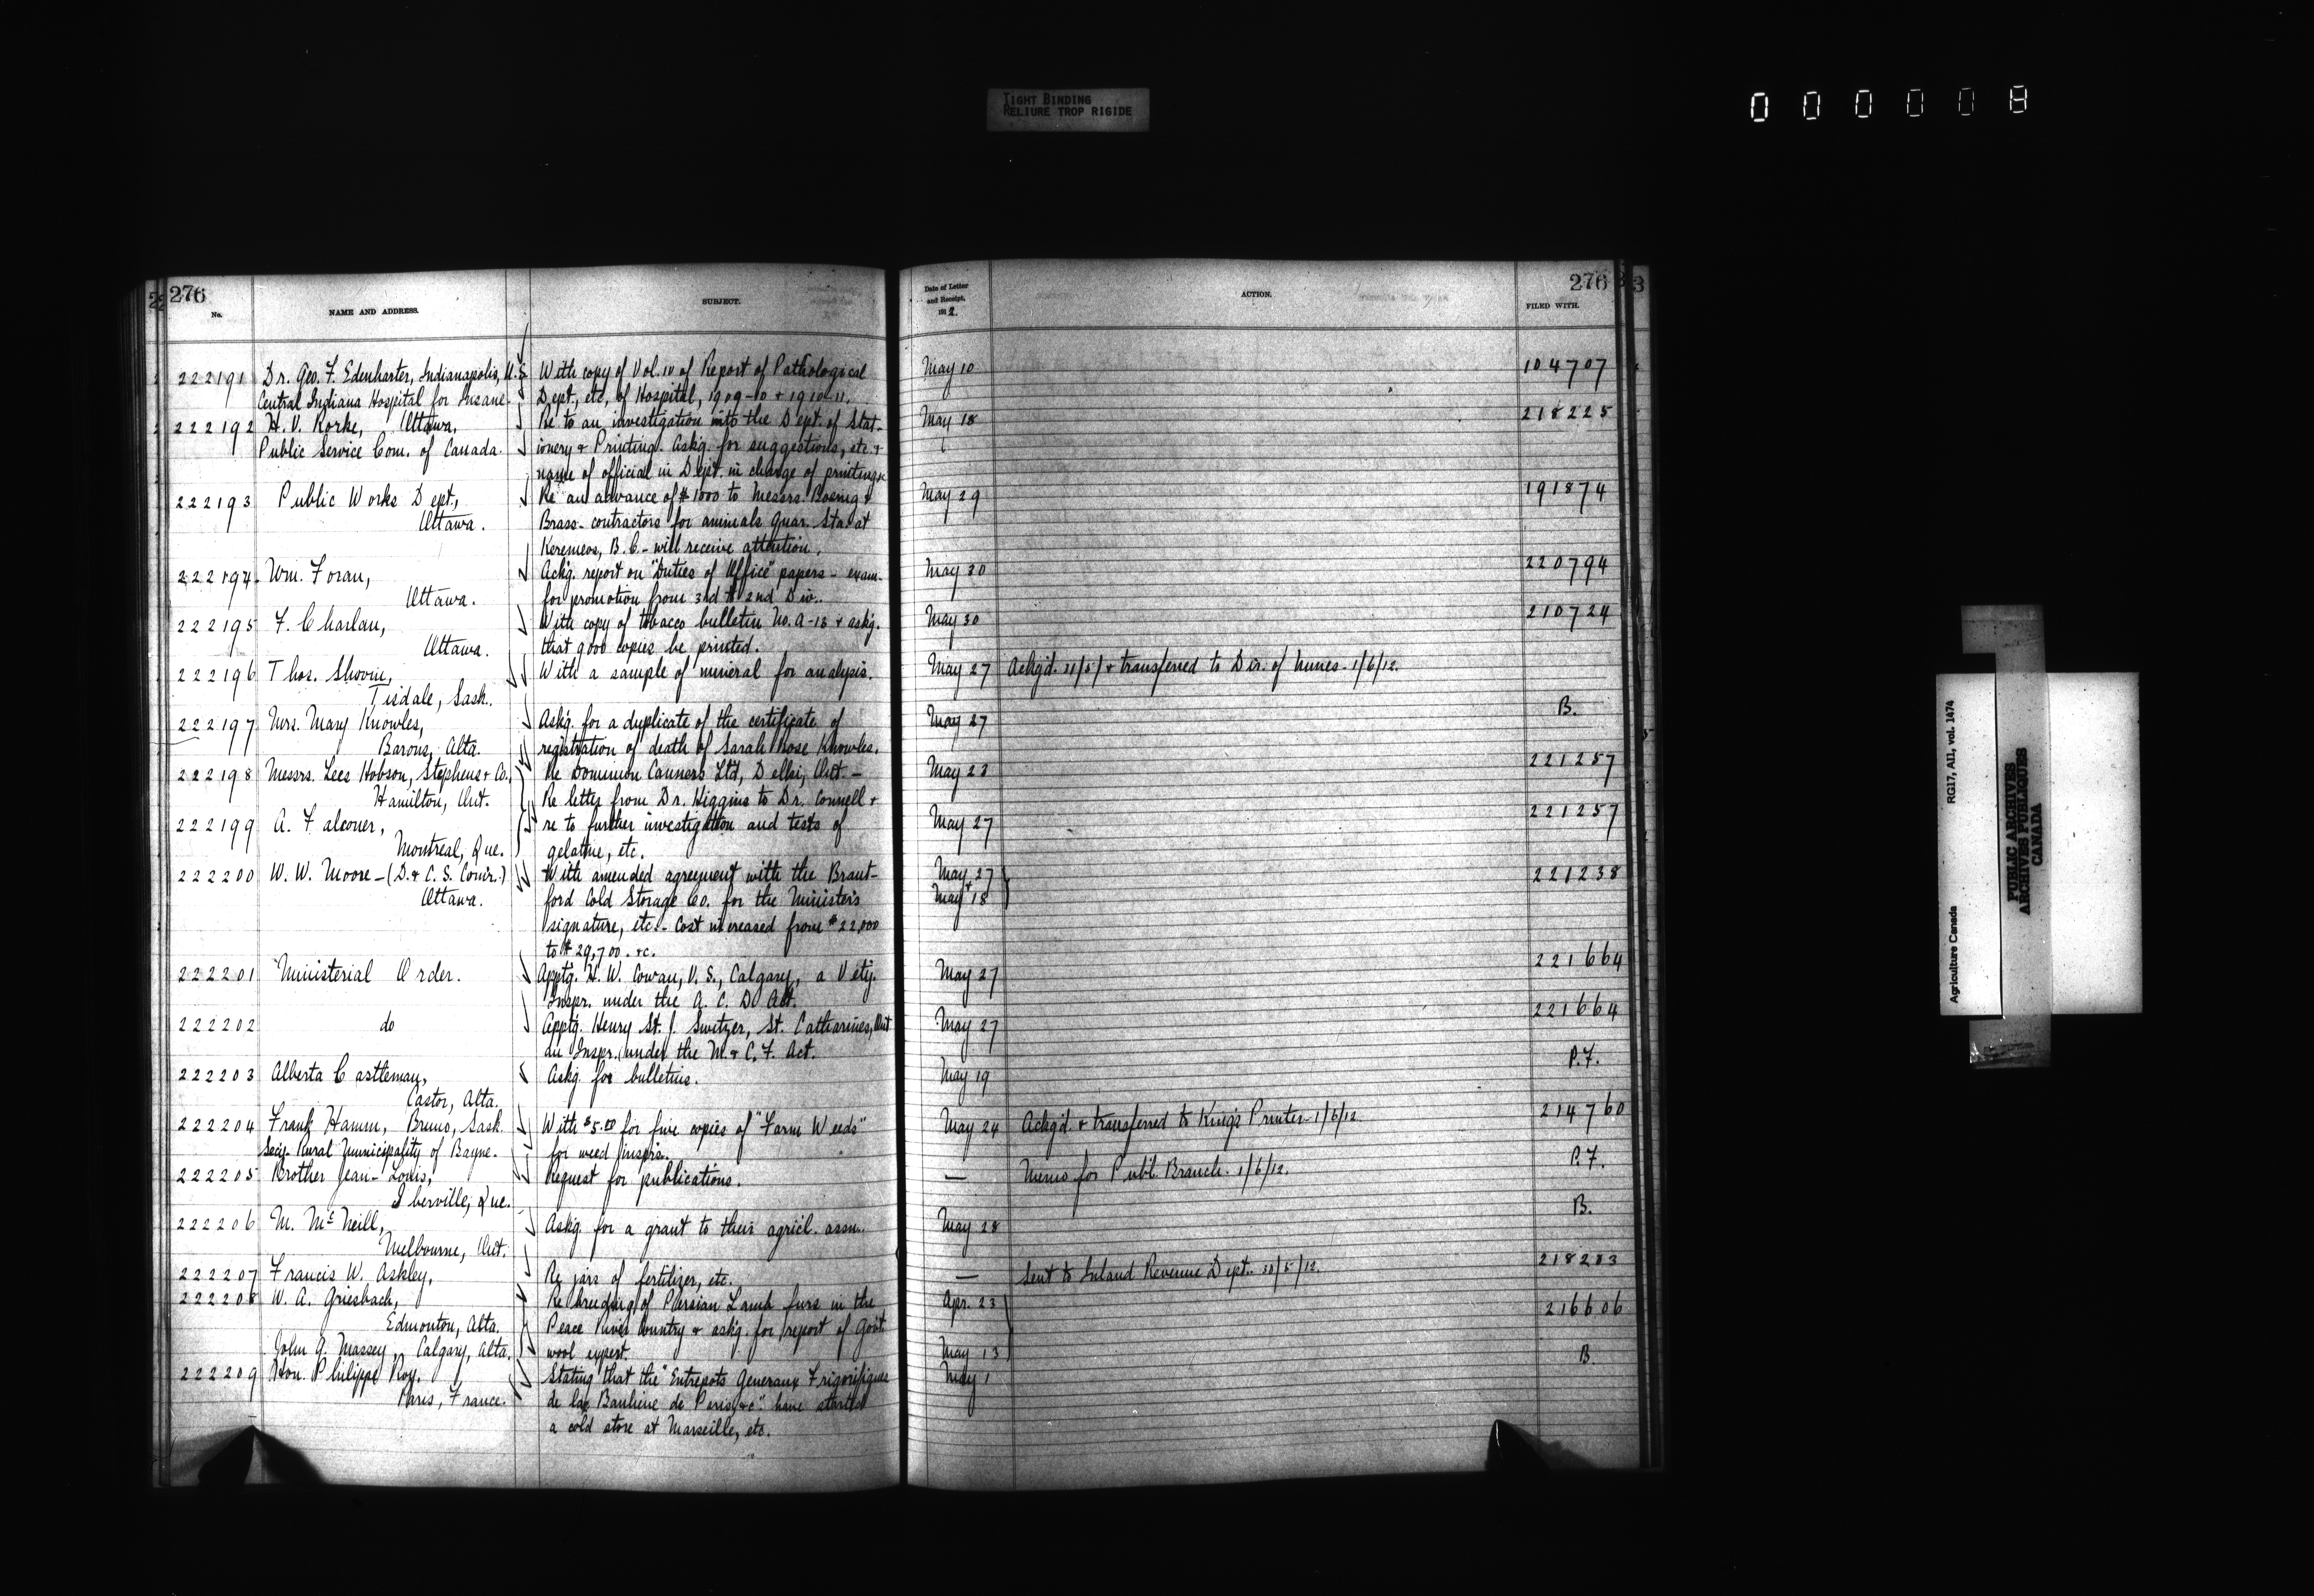 TIGHT BINDING
RELIURE TROP RIGIDE
0 0 0 0 0 8
276
No.
NAME AND ADDRESS.
SUBJECT.
222191 Dr. Geo. F. Edenharter, Indianapolis, U.S. With copy of Vol. IV of Report of Pathological
Central Indiana Hospital for Insane. Dept., etc. of Hospital, 1909-10 + 1910-11.
222192 H. V. Rorke, Ottawa, Re to an investigation into the Dept. of Stat-
Public Service Com. of Canada. ionery + Printing. Askg. for suggestions, etc. +
name of official in Dept. in charge of printing
222193 Public Works Dept., Re an advance of $1000 to Messrs. Boenig +
Ottawa. Brass- contractors for animals quar. Sta. at
Keremeos, B.C. - will receive attention.
222194 Wm. Foran, Ackg. report on "Duties of Office" papers - exam.
Ottawa. for promotion from 3rd to 2nd Div.
222195 F. Charlan, With copy of tobacco bulletin No. A-13 + askg.
Ottawa. that copies be printed.
222196 Thos. With a sample of mineral for analysis.
Tisdale, Sask.
222197 Mrs. Mary Knowles, Askg. for a duplicate of the certificate of
Barons, Alta. registration of death of Sarah Rose Knowles.
222198 Messrs. Lees Hobson, Stephens + Co. Re Dominion Canners Ltd, Delhi, Ont. -
Hamilton, Ont. Re letter from Dr. Higgins to Dr. Connell +
222199 A. Falconer, re to further investigation and tests of
Montreal, Que. gelatine, etc.
222200 W. W. Moore - (D. + C. S. Comr.) With amended agreement with the Brant-
Ottawa. ford Cold Storage Co. for the Minister's
signature, etc. - Cost increased from $22,000
to $29,700. +c.
222201 Ministerial Order. Apptg. H. W. Cowan, V.S., Calgary, a Vety.
Inspr. under the A. C. D. Act.
222202 do Apptg. Henry St. J. Switzer, St. Catharines, Ont
an Inspr. under the M. + C. F. Act.
222203 Alberta Castleman, Askg. for bulletins.
Castor, Alta.
222204 Frank Hamm, Bruno, Sask. With $5.00 for five copies of "Farm Weeds"
Secy. Rural Municipality of Bayne. for weed Insprs.
222205 Brother Jean-Louis, Request for publications.
Iberville, Que.
222206 M. McNeill, Askg. for a grant to their agricl. assn.
Melbourne, Ont.
222207 Francis W. Askley, Re jars of fertilizer, etc.
222208 W. A. Griesbach, Re breeding of Persian Lamb furs in the
Edmonton, Alta. Peace River Country + askg. for report of Govt
John G. Massey, Calgary, Alta. wool expert.
222209 Hon. Philippe Roy. Stating that the "Entrepots Generaux Frigorifique
Paris, France. de la Banlieue de Paris, +c". have started
a cold store at Marseille, etc.
Date of Letter
and Receipt,
191 2.
ACTION.
276
FILED WITH.
May 10 104707
May 18 218225
May 29 191874
May 30 220794
May 30 210724
May 27 Ackg'd. 31/5/ + transferred to Dir. of Mines - 1/6/12.
May 27 B.
May 23 221257
May 27 221257
May 27 221238
+
May 18
May 27 221664
May 27 221664
May 19 P.F.
May 24 Ackg'd. + transferred to King's Printer - 1/6/12 214760
— Memo for Publ. Branch. 1/6/12. P.F.
May 28 B.
— Sent to Inland Revenue Dept. 30/5/12. 218203
Apr. 23 216606
May 13
May 1 B.
Agriculture Canada RG17, AII, vol. 1474
PUBLIC ARCHIVES
ARCHIVES PUBLIQUES
CANADA